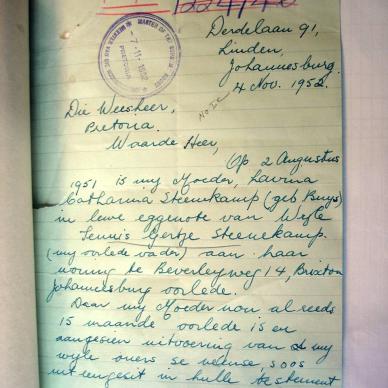 1224/40
MASTER OF THE SUPREME COURT
PRETORIA
-7-11-1952
Derdelaan 91,
Linden,
Johannesburg.
4 Nov. 1952.
Die Weesheer,
Pretoria.
Waarde Heer,
Op 2 Augustus
1951 is my Moeder, Lavina
Catharina Steenekamp (geb Buys)
in lewe eggenote van Wyle
Teunis Gertze Steenekamp
(my oorlede vader) aan haar
woning te Beverleyweg 14, Brixton
Johannesburg oorlede.
Daar my Moeder nou al reeds
15 maande oorlede is en
aangesien uitvoering van my
wyle ouers se wense soos
uiteengesit in hulle testament